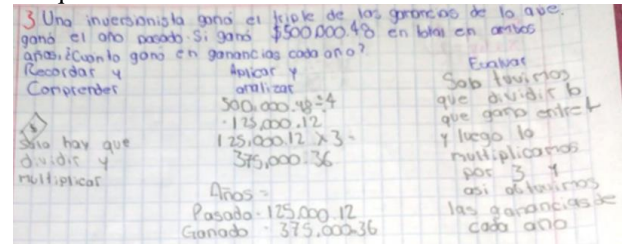 3 Una inversionista ganó el triple de las ganancias de la que
ganó el año pasado. Si ganó $500,000.48 en total en ambos
años. ¿Cuánto ganó en ganancias cada año?
Recordar y
Comprender
Solo hay que
dividir y
multiplicar
Aplicar y
analizar
500,000.48÷4
=125,000.12
125,000.12 x3=
375,000.36
Años=
Pasado=125,000.12
Ganado= 375,000.36
Evaluar
Solo tuvimos
que dividir lo
que ganó entre 4
y luego lo
multiplicamos
por 3 y
así obtuvimos
las ganancias de
cada año